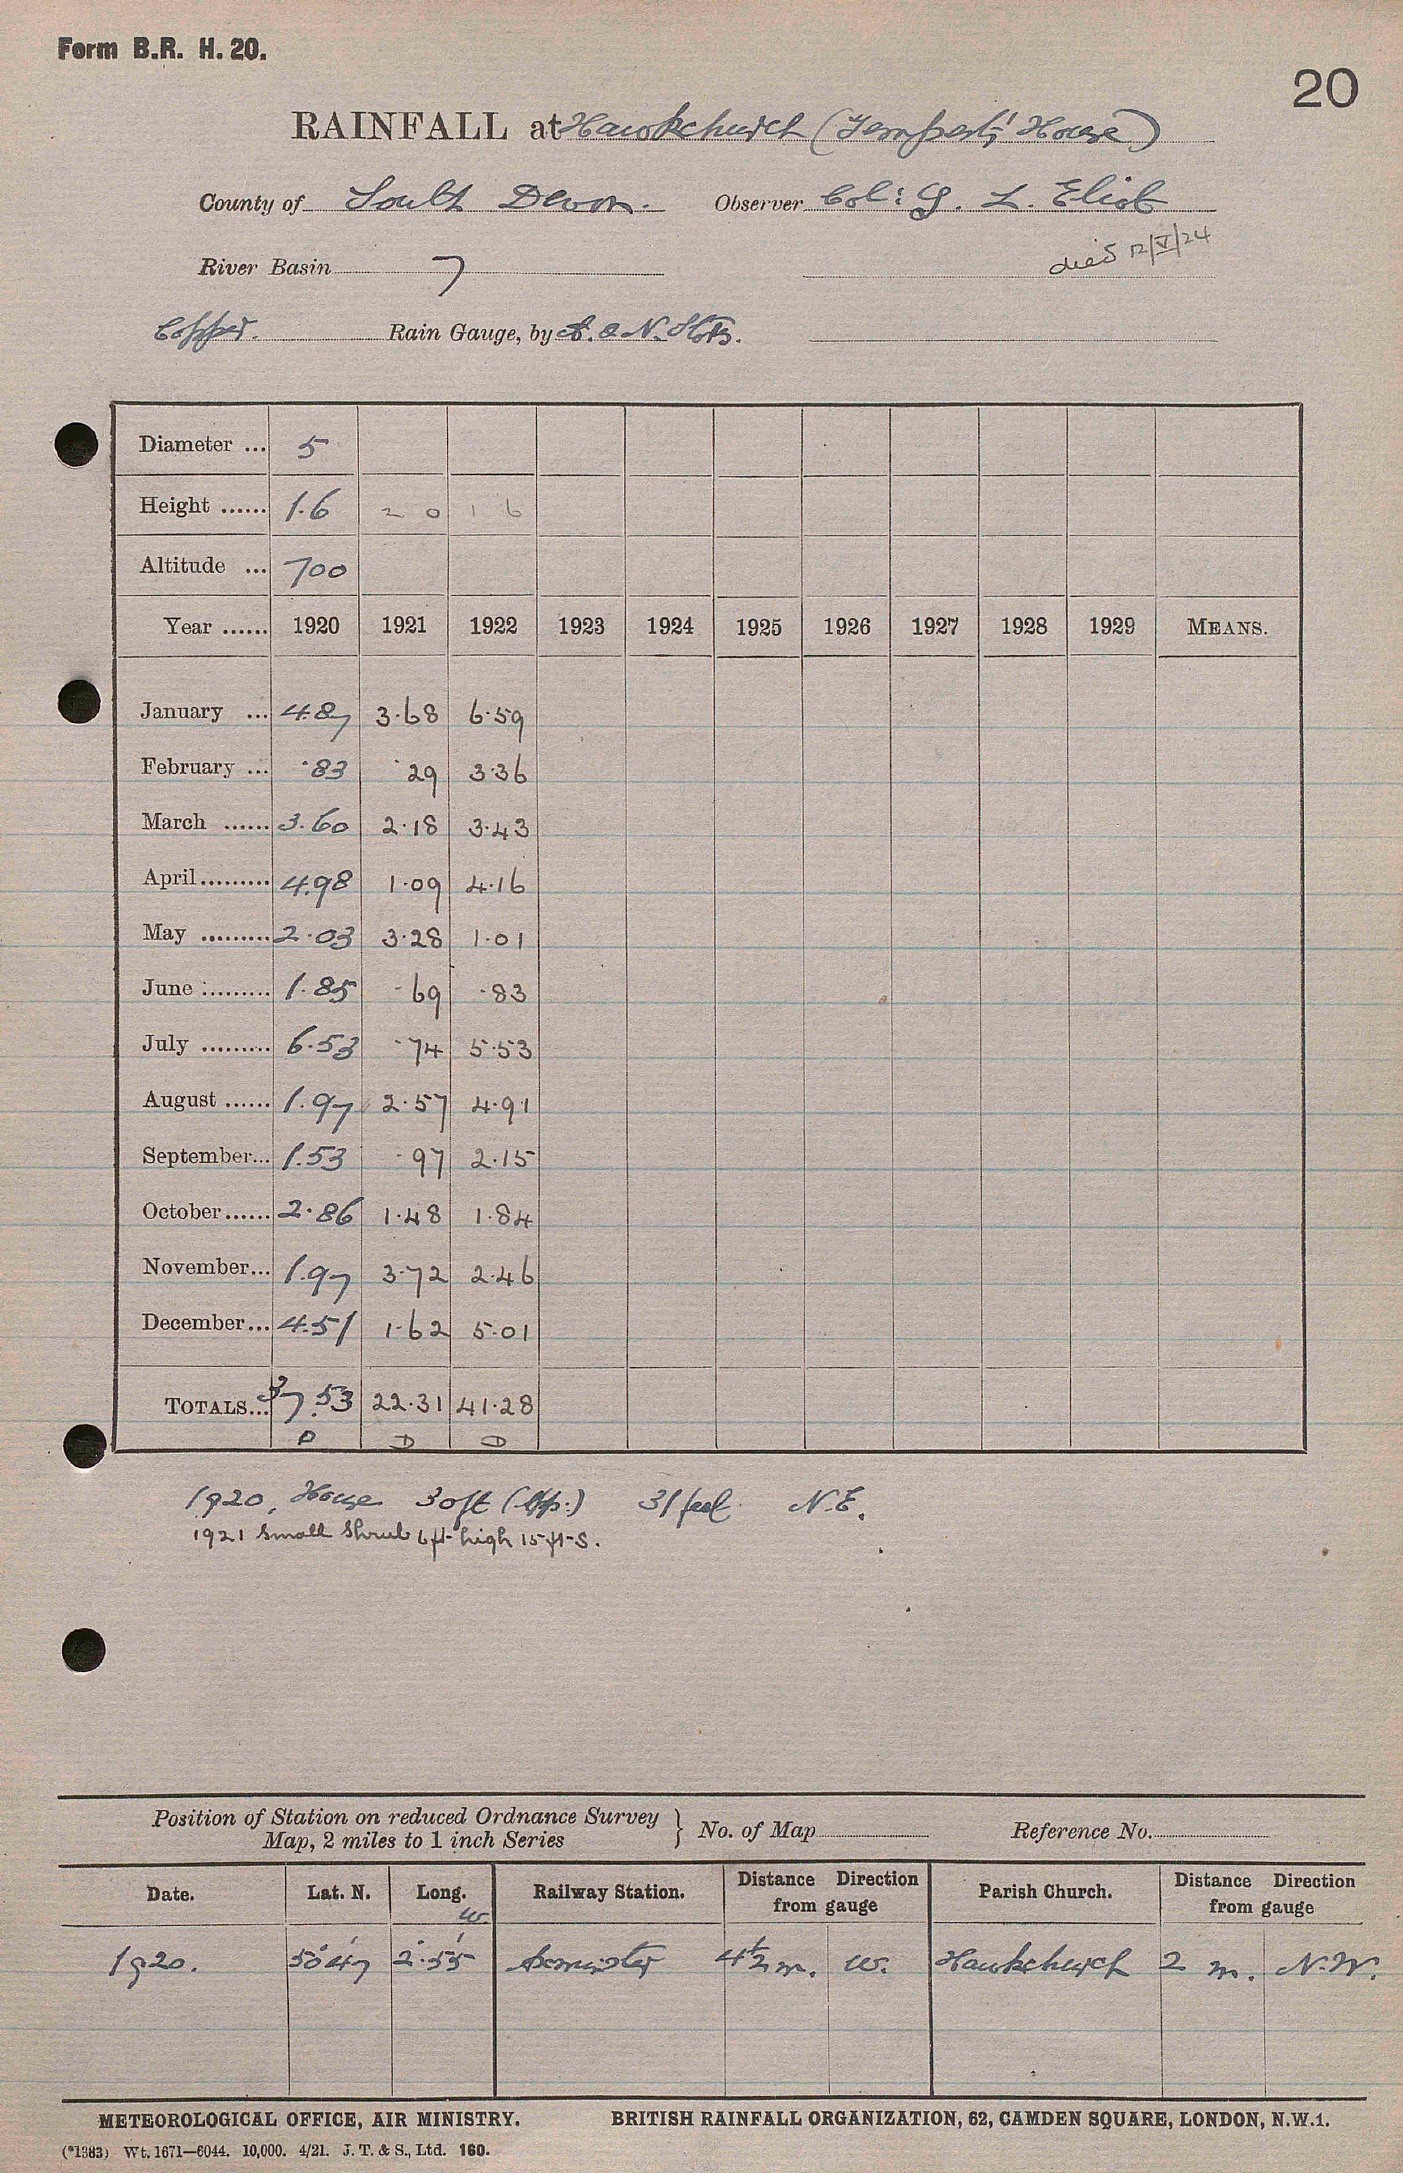 Form B.R. H. 20.
20
RAINFALL at Hawkchurch ( House)
County of South Devon. Observer Col: G. L. Eliot
River Basin 7 died 12/V/24
Copper. Rain Gauge, by A. & N. Strs.
Diameter ... 5
Height ...... 1.6 2 0 1 6
Altitude ... 700
Year ...... 1920 1921 1922 1923 1924 1925 1926 1927 1928 1929 MEANS.
January ... 4.87 3.68 6.59
February ... .83 .29 3.36
March ...... 3.60 2.18 3.43
April......... 4.98 1.09 4.16
May ......... 2.03 3.28 1.01
June ......... 1.85 .69 .83
July ......... 6.53 .74 5.53
August ...... 1.97 2.57 4.91
September... 1.53 .97 2.15
October...... 2.86 1.48 1.84
November... 1.97 3.72 2.46
December... 4.51 1.62 5.01
TOTALS... 37.53 22.31 41.28
D D D
1920, House 30ft (App:) 31 feet N.E.
1921 Small Shrub 6ft high 15ft S.
Position of Station on reduced Ordnance Survey
Map, 2 miles to 1 inch Series } No. of Map Reference No.
Date. Lat. N. Long. W. Railway Station. Distance Direction from gauge Parish Church. Distance Direction from gauge
1920. 50°47' 2°55' Axminster 4½ m. W. Hawkchurch 2 m. N.W.
METEOROLOGICAL OFFICE, AIR MINISTRY. BRITISH RAINFALL ORGANIZATION, 62, CAMDEN SQUARE, LONDON, N.W.1.
(*1383) Wt. 1671—6044. 10,000. 4/21. J. T. & S., Ltd. 160.